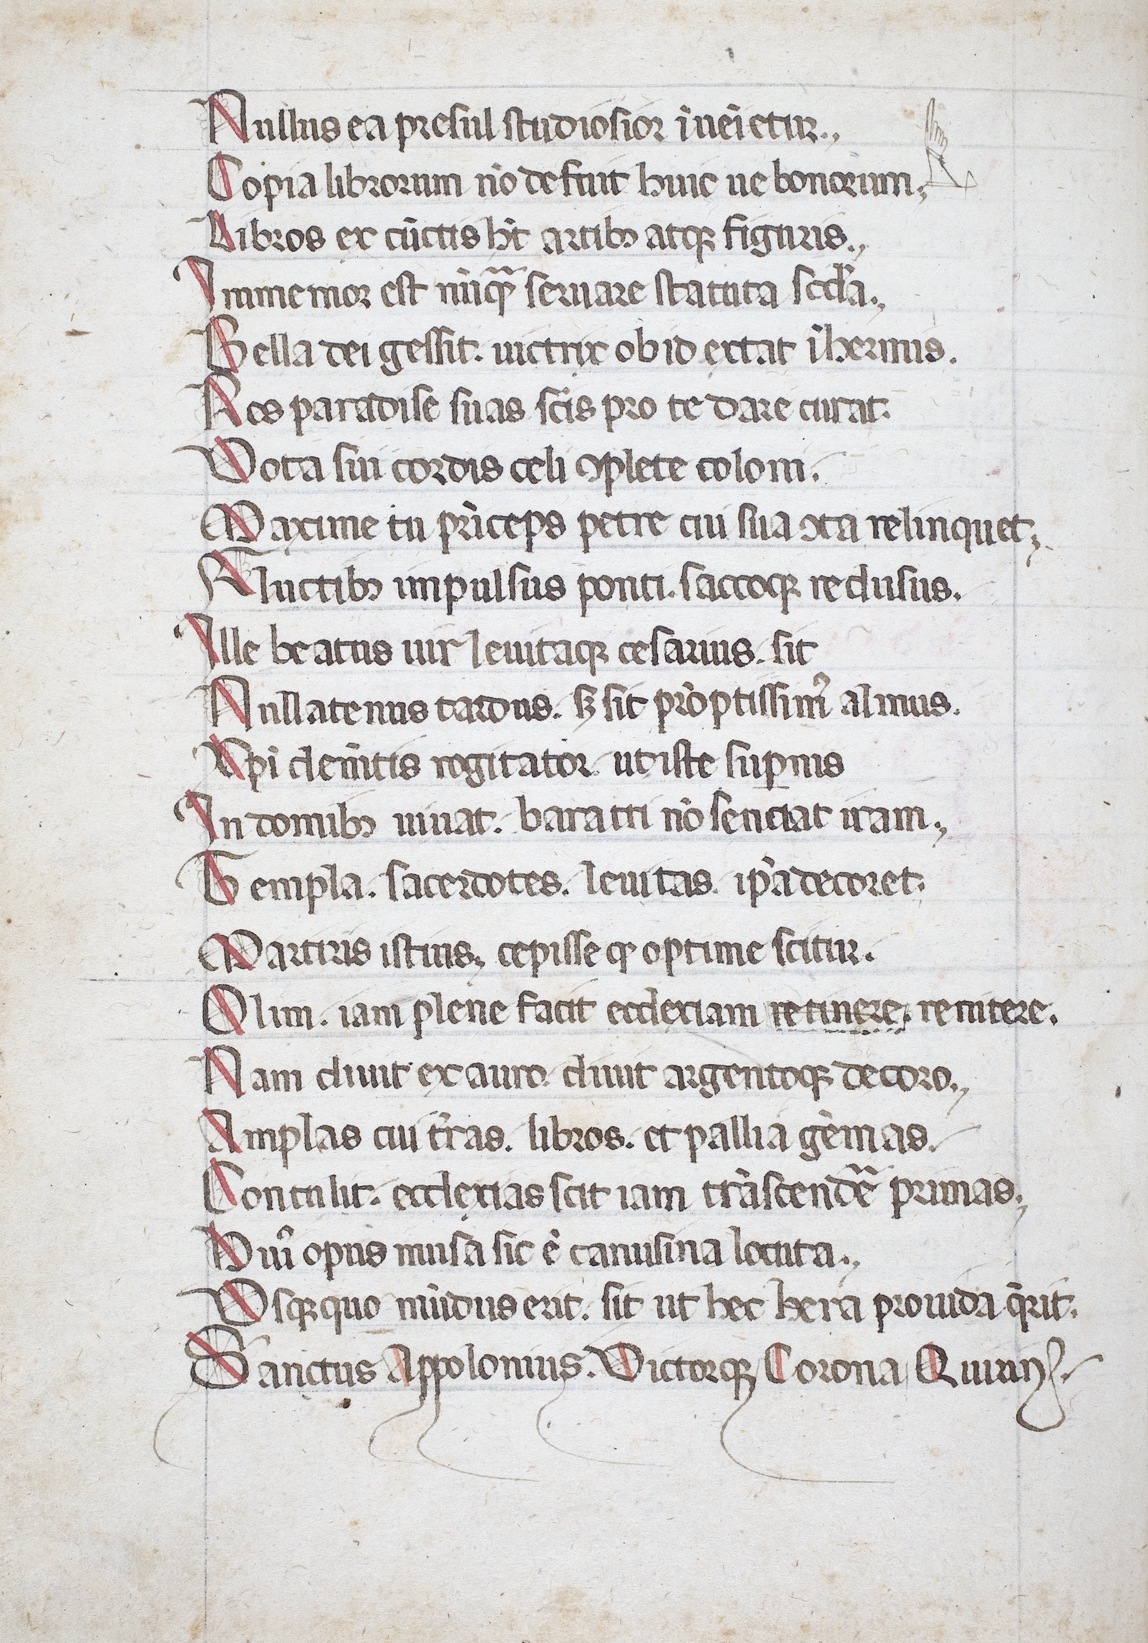 Nullus ea presul studiosior īueīetur.,
Copia librorum nō defuit huic ue bonorum;
Libros ex cūctis hēt artibꝫ atqꝫ figuris.,
Immemor est nūqᷓ seruare statuta scdꝉa.,
Bella dei gessit. uictrix ob id extat ī hermis.
Res paradise suas sc̄is pro te dare curat.
Vota sui cordis celi ꝯplete coloni.
Maxime tu prīceps petre cui sua ꝯta relinquet;
Fluctibꝫ impulsus ponti. saccoqꝫ reclusus.
Ille beatus uir leuitaqꝫ cesarius. sit
Nullatenus tardus. sꝫ sit prōptissimꝰ almus.
Xp̄i clemētis rogitator ut iste suꝑnis
In domibꝫ uiuat. baratri nō senciat iram,
Templa. sacerdotes. leuitas. ip̄a decoret.
Martiris istius, cepisse ꝙ optime scitur.
Olim. iam plene facit ecclexiam retinere, renitere.
Nam cluit ex auro. cluit argentoqꝫ decoro.,
Amplas cui tr̄as. libros. et pallia gēmas.
Contulit. ecclexias scit iam trāscendeᷓ primas,
Diuū opus musa sic ē canusina locuta.,
Vsqꝫquo mūdus erit. sit ut hec hera prouida q̄rit.
Sanctus Appolonius. Victorqꝫ Corona Quirinꝰ.